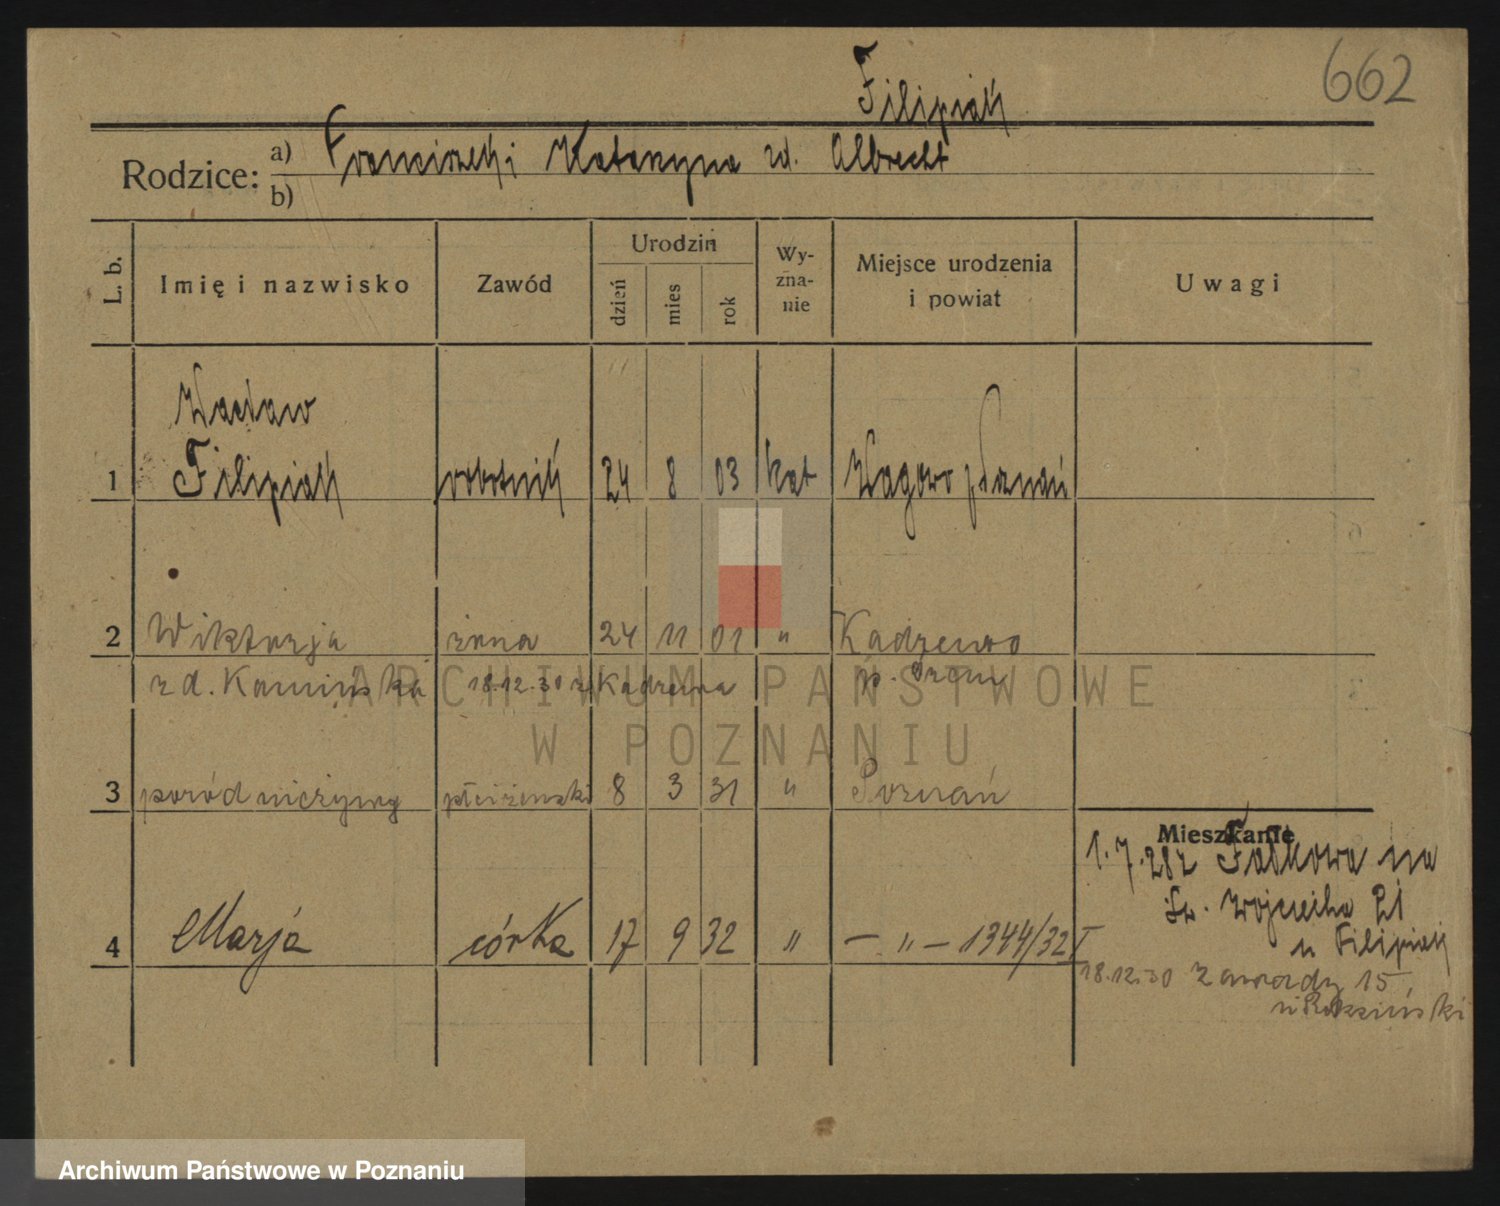 662
Filipiak
Rodzice: a) Franciszek i Katarzyna zd. Albrecht
b)
L. b.
Imię i nazwisko
Zawód
Urodzin
dzień
mies
rok
Wy-
zna-
nie
Miejsce urodzenia
i powiat
Uwagi
Wacław
1 Filipiak robotnik 24 8 03 kat Wagowo p. Poznań
2 Wiktorja żona 24 11 01 " Kadzewo
zd. Kamińska 18.12.30 z Kadzewa p. Śrem
3 poród nieżywy płci żeński 8 3 31 " Poznań
Mieszkanie
1.7.28 z Fałkowa na
Św. Wojciecha 21
u Filipiak
4 Marja córka 17 9 32 " — " — 1344/32 I
18.12.30 Zawady 15,
u
ARCHIWUM PAŃSTWOWE
W POZNANIU
Archiwum Państwowe w Poznaniu